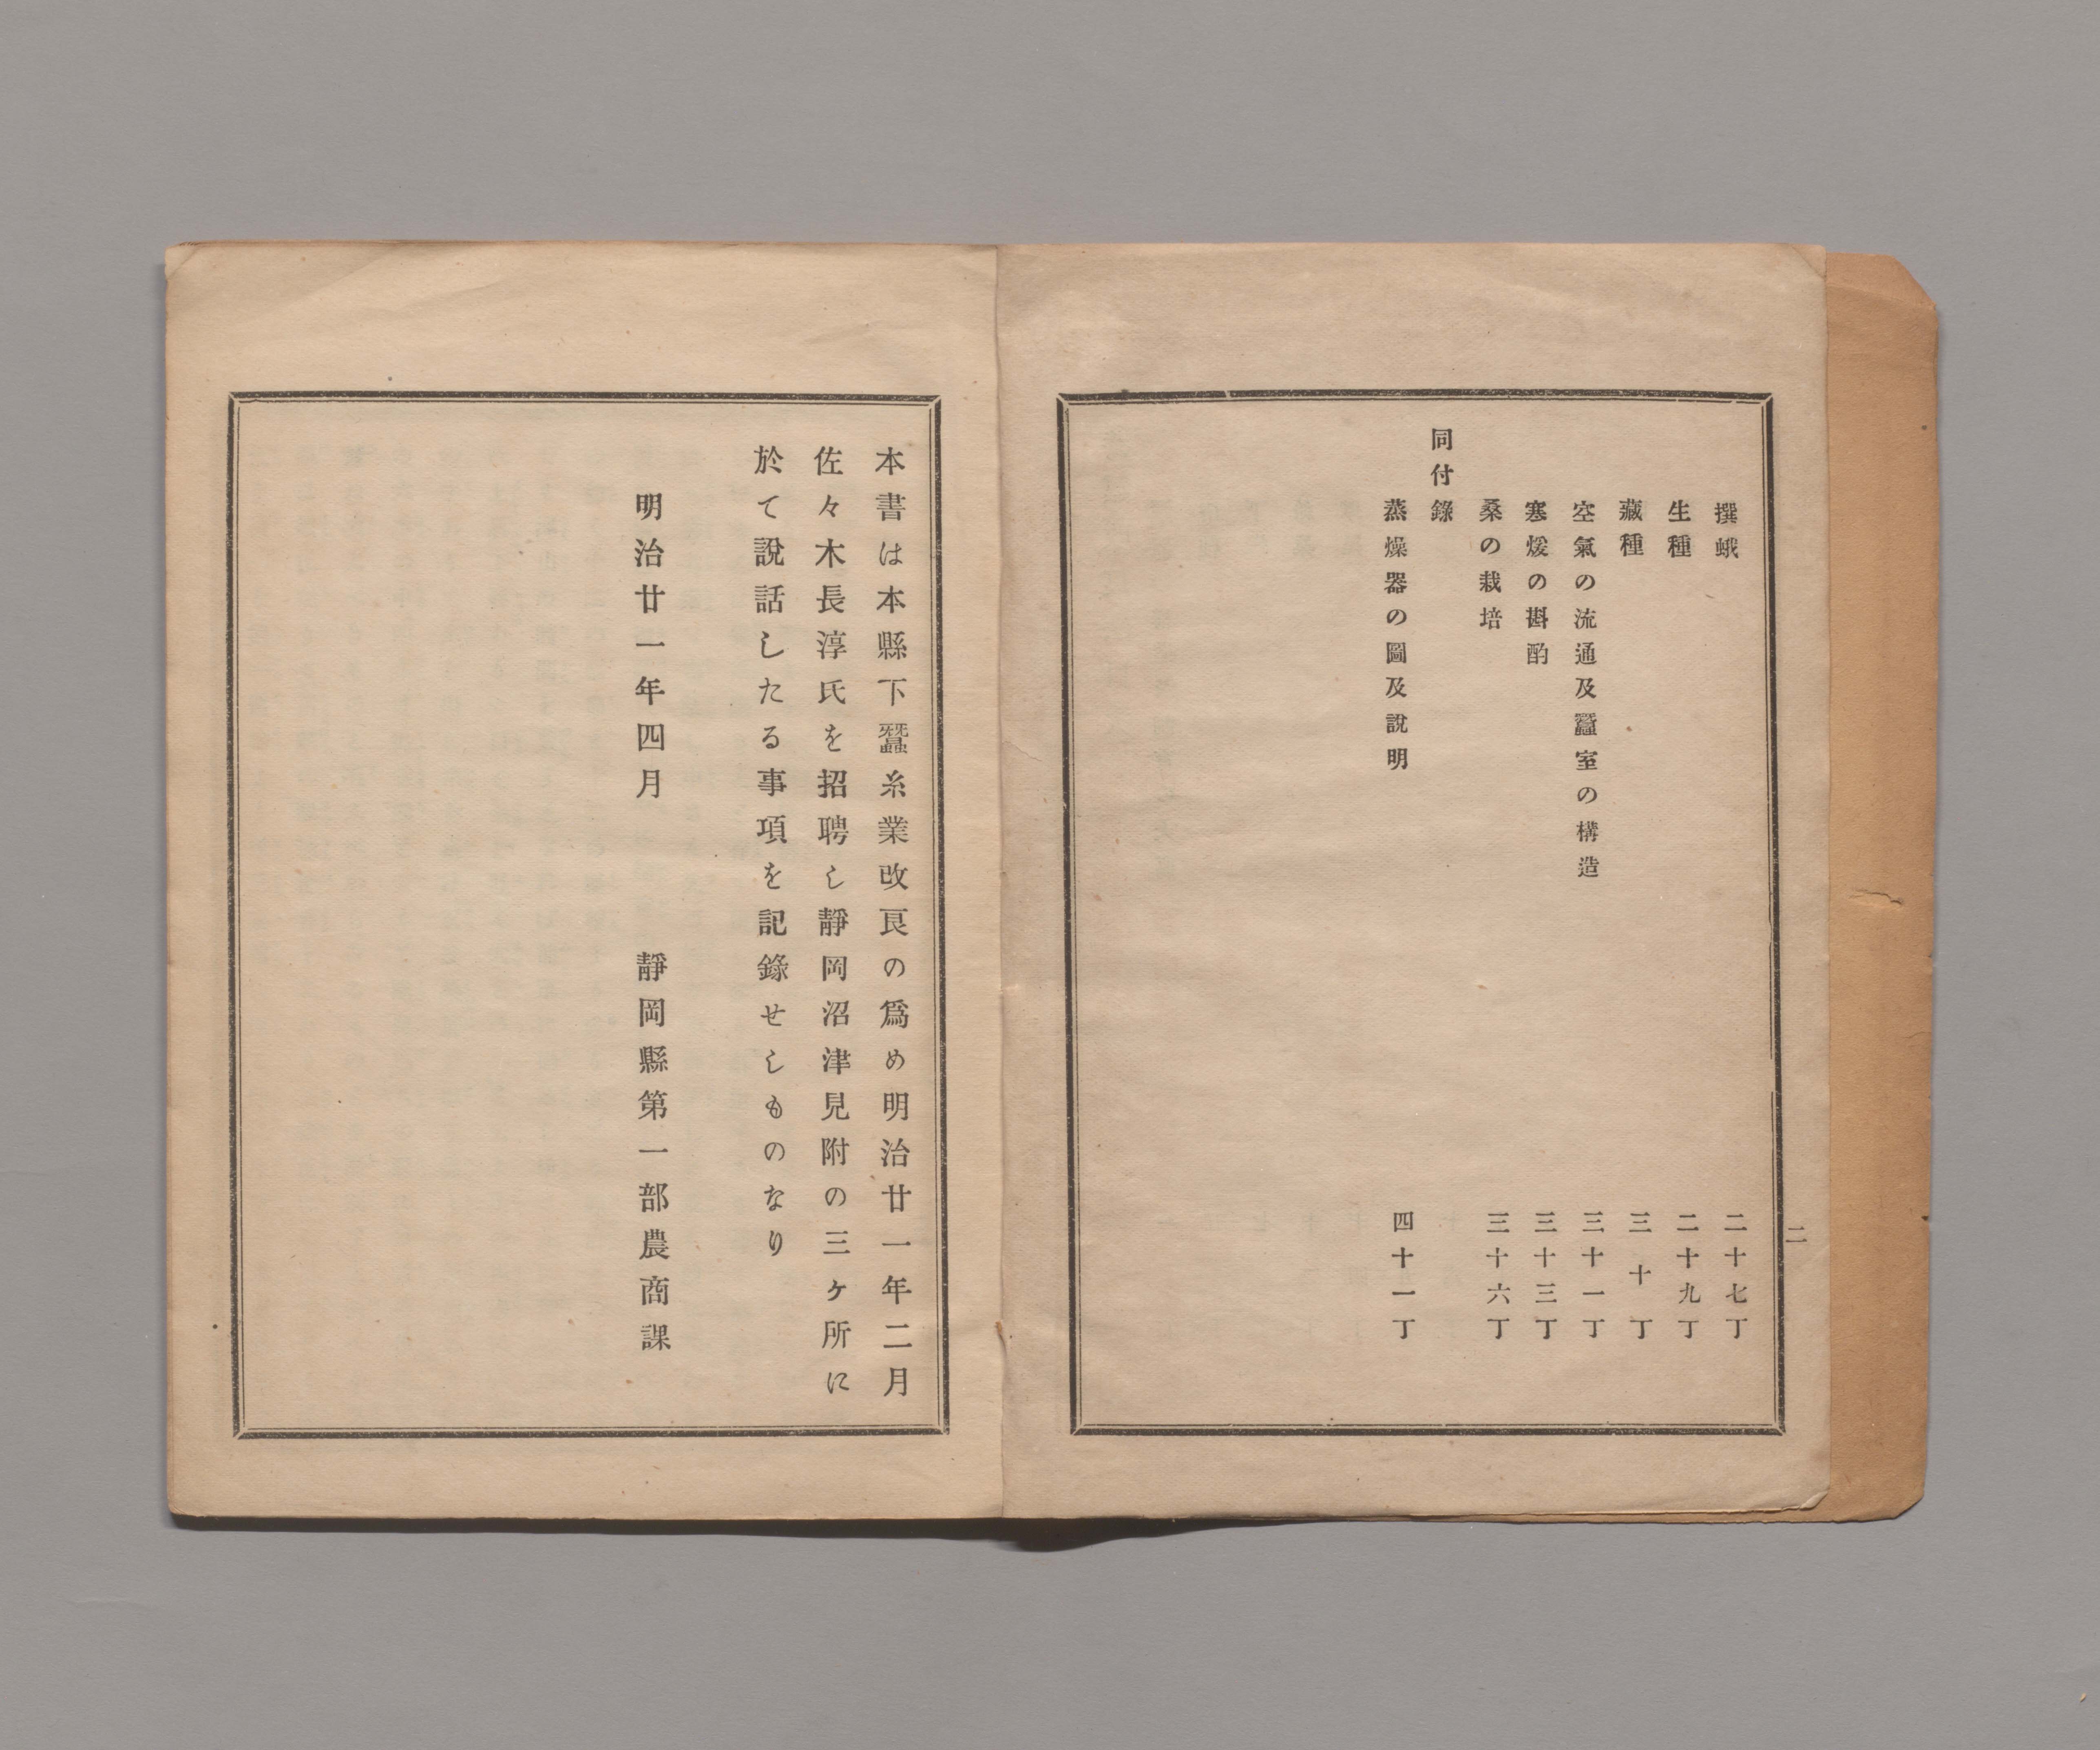 二
撰蛾　二十七丁
生種　二十九丁
藏種　三十丁
空氣の流通及蠶室の構造　三十一丁
寒煖の斟酌　三十三丁
桑の栽培　三十六丁
同付錄
蒸燥器の圖及說明　四十一丁
本書は本縣下蠶糸業改良の爲め明治廿一年二月
佐々木長淳氏を招聘し靜岡沼津見附の三ヶ所に
於て說話したる事項を記錄せしものなり
明治廿一年四月　靜岡縣第一部農商課